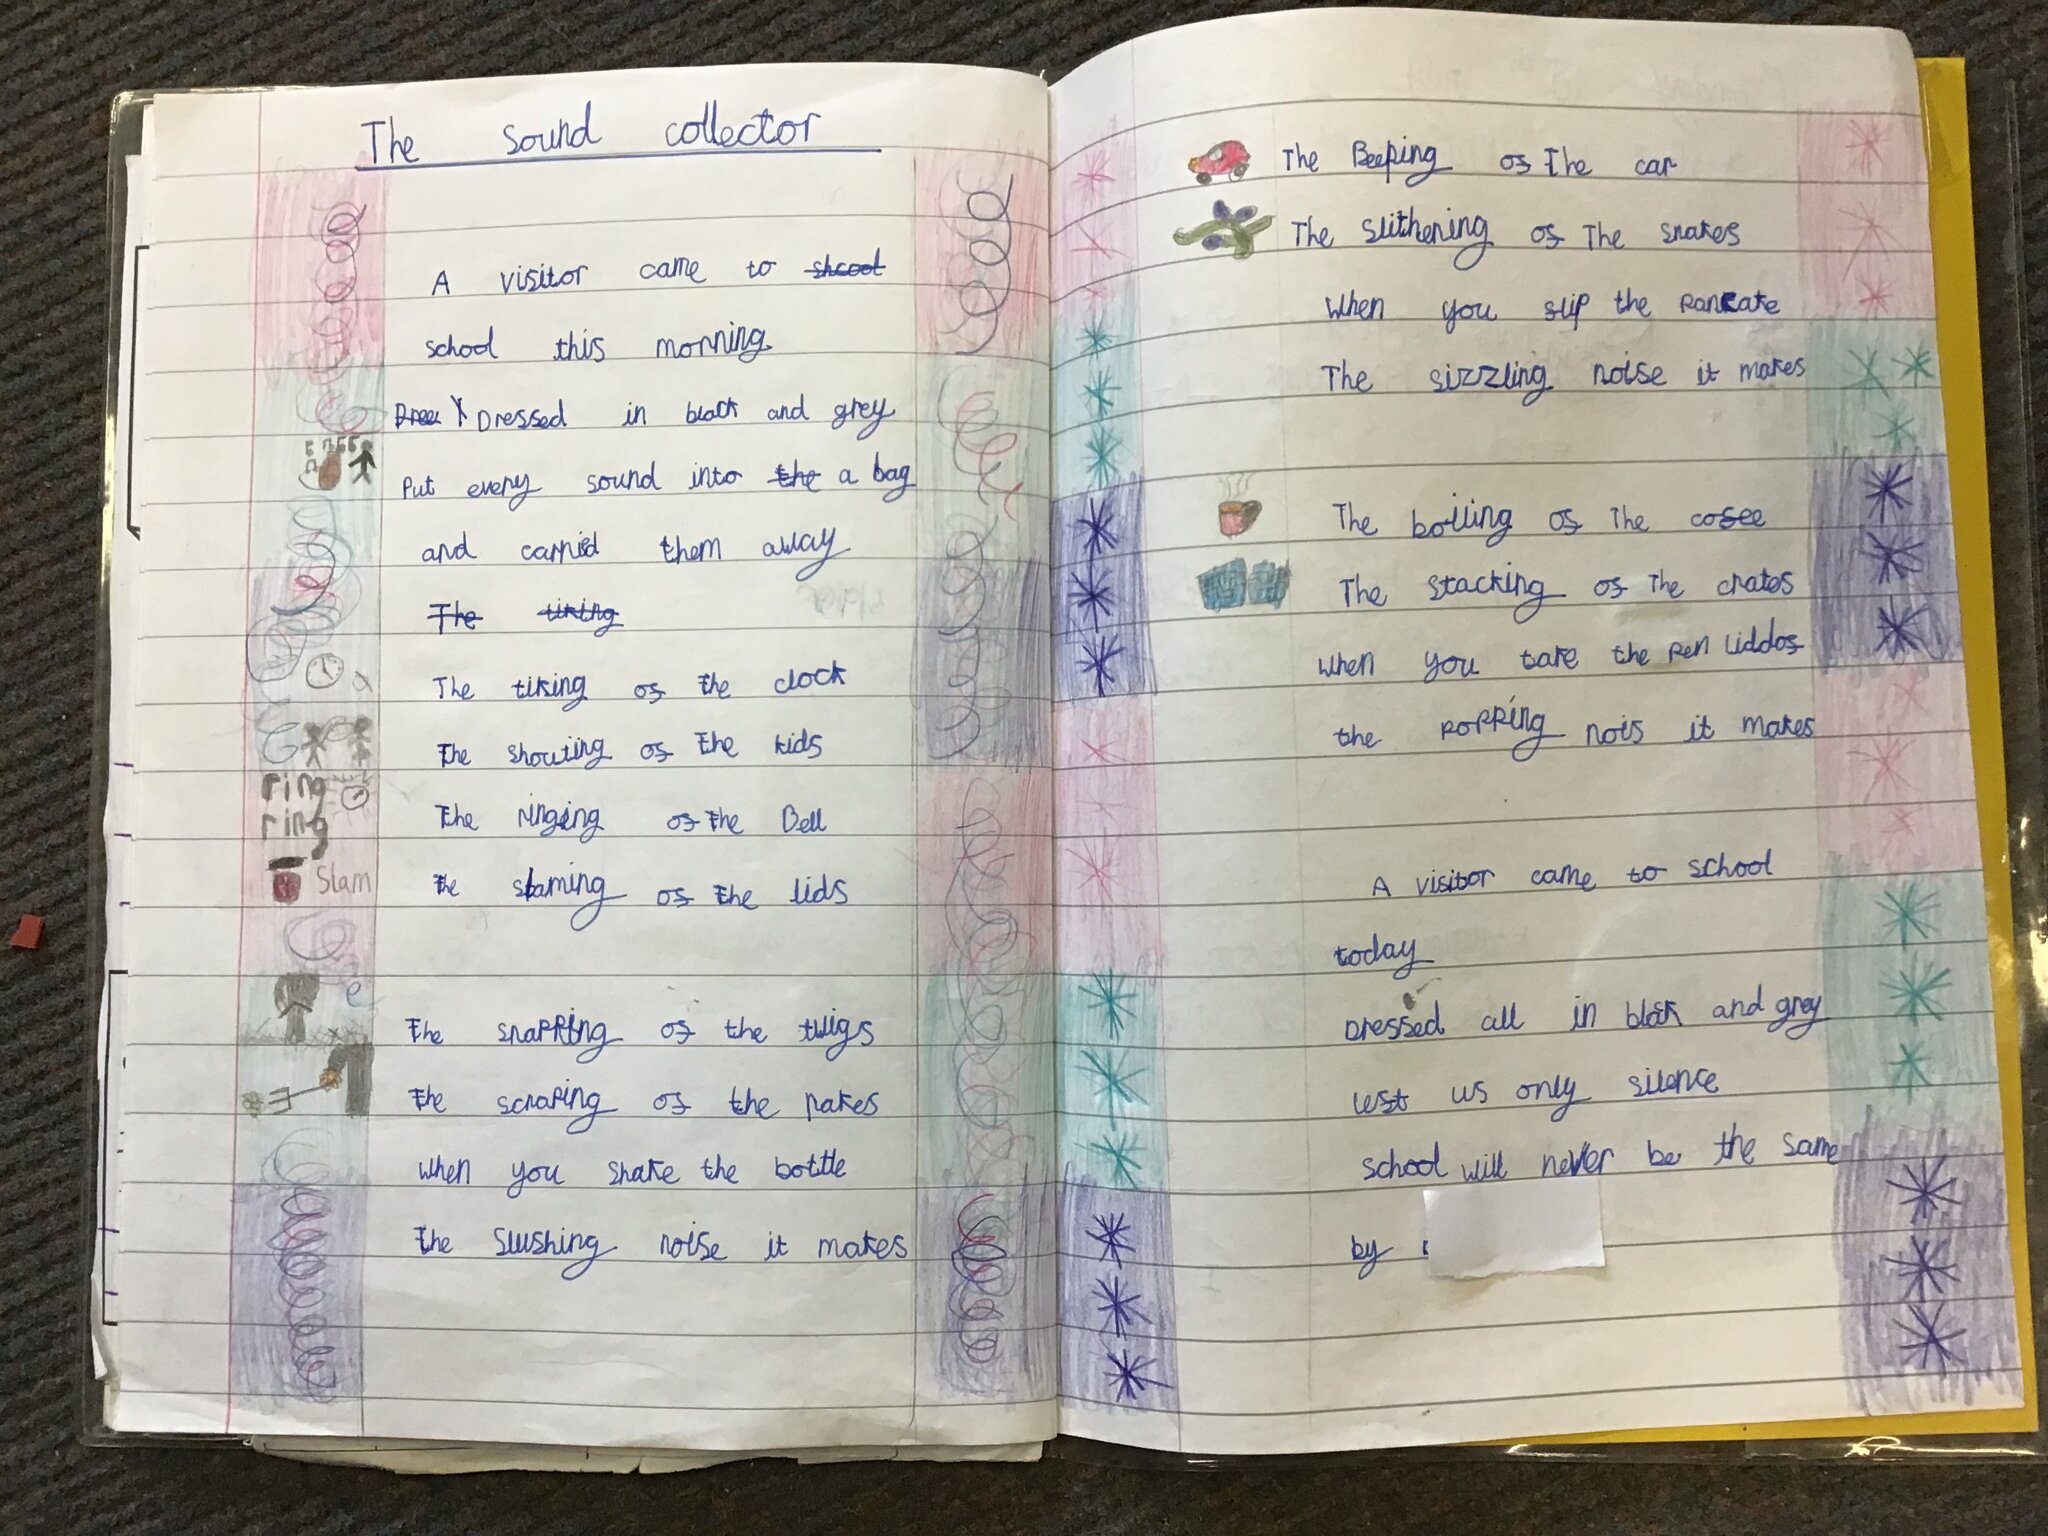 The sound collector
A visitor came to shcool
school this morning
Dree Dressed in black and grey
Put every sound into the a bag
and carried them away
The tiking
The tiking of the clock
The shouting of the kids
ring
The ringing of the Bell
ring
Slam
The slaming of the lids
The snapping of the twigs
The scraping of the rakes
when you shake the bottle
the slushing noise it makes
The Beeping of The car
The slithering of The snakes
When you slip the pancake
The sizzling noise it makes
The boiling of The cofee
The stacking of The crates
when you take the pen liddos
the popping nois it makes
A visitor came to school
today
Dressed all in black and grey
lest us only silence
school will never be the same
by